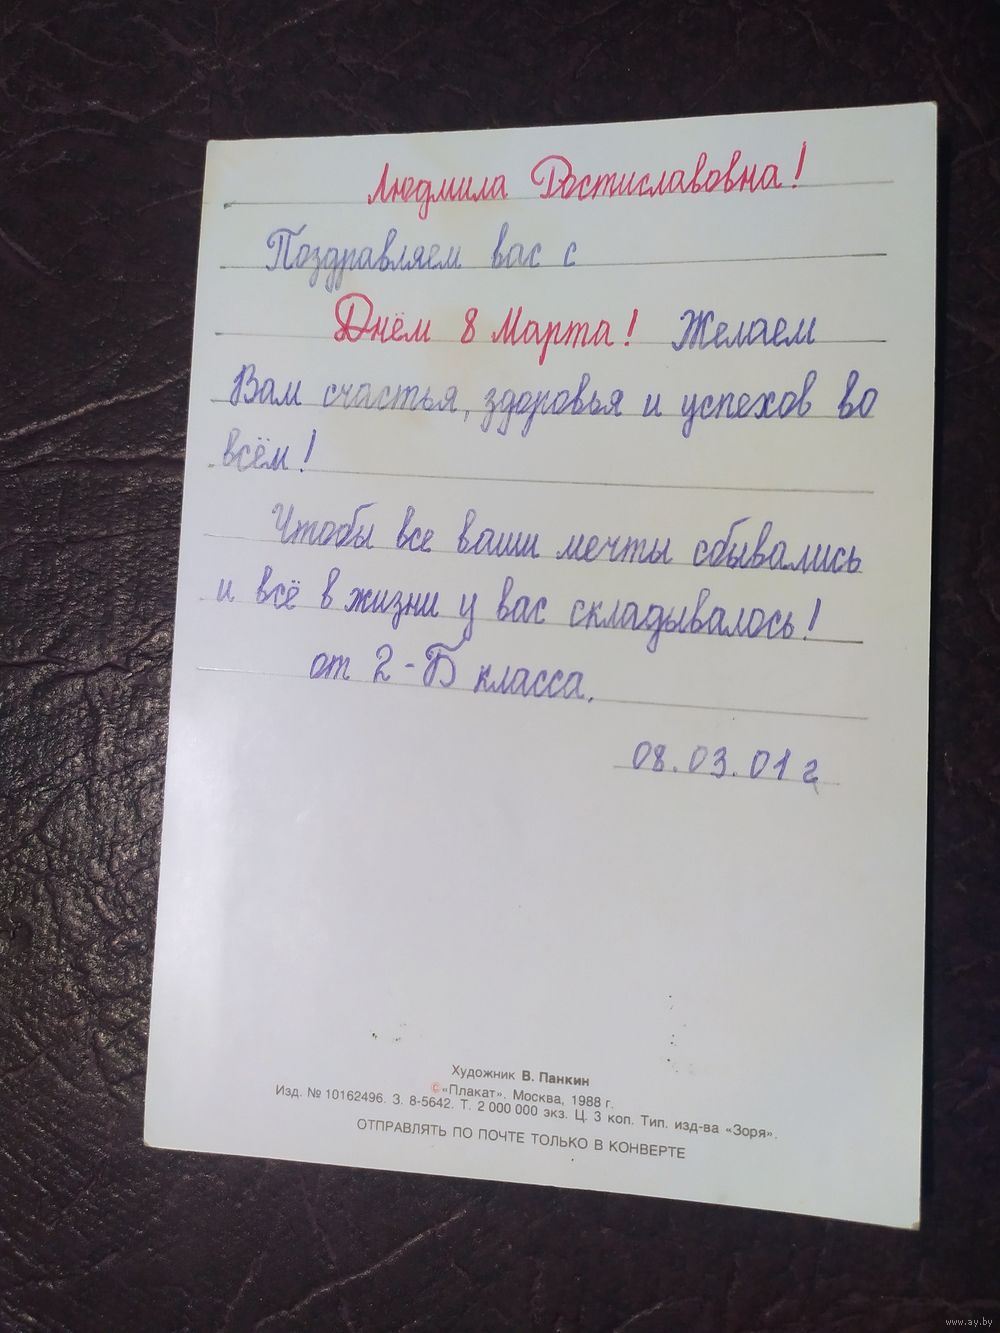 Людмила Ростиславовна!
Поздравляем вас с
Днём 8 Марта! Желаем
Вам счастья, здоровья и успехов во
всём!
Чтобы все ваши мечты сбывались
и всё в жизни у вас складывалось!
от 2-Б класса.
08.03.01 г
Художник В. Панкин
©«Плакат». Москва, 1988 г.
Изд. № 10162496. З. 8-5642. Т. 2 000 000 экз. Ц. 3 коп. Тип. изд-ва «Зоря».
ОТПРАВЛЯТЬ ПО ПОЧТЕ ТОЛЬКО В КОНВЕРТЕ
www.ay.by